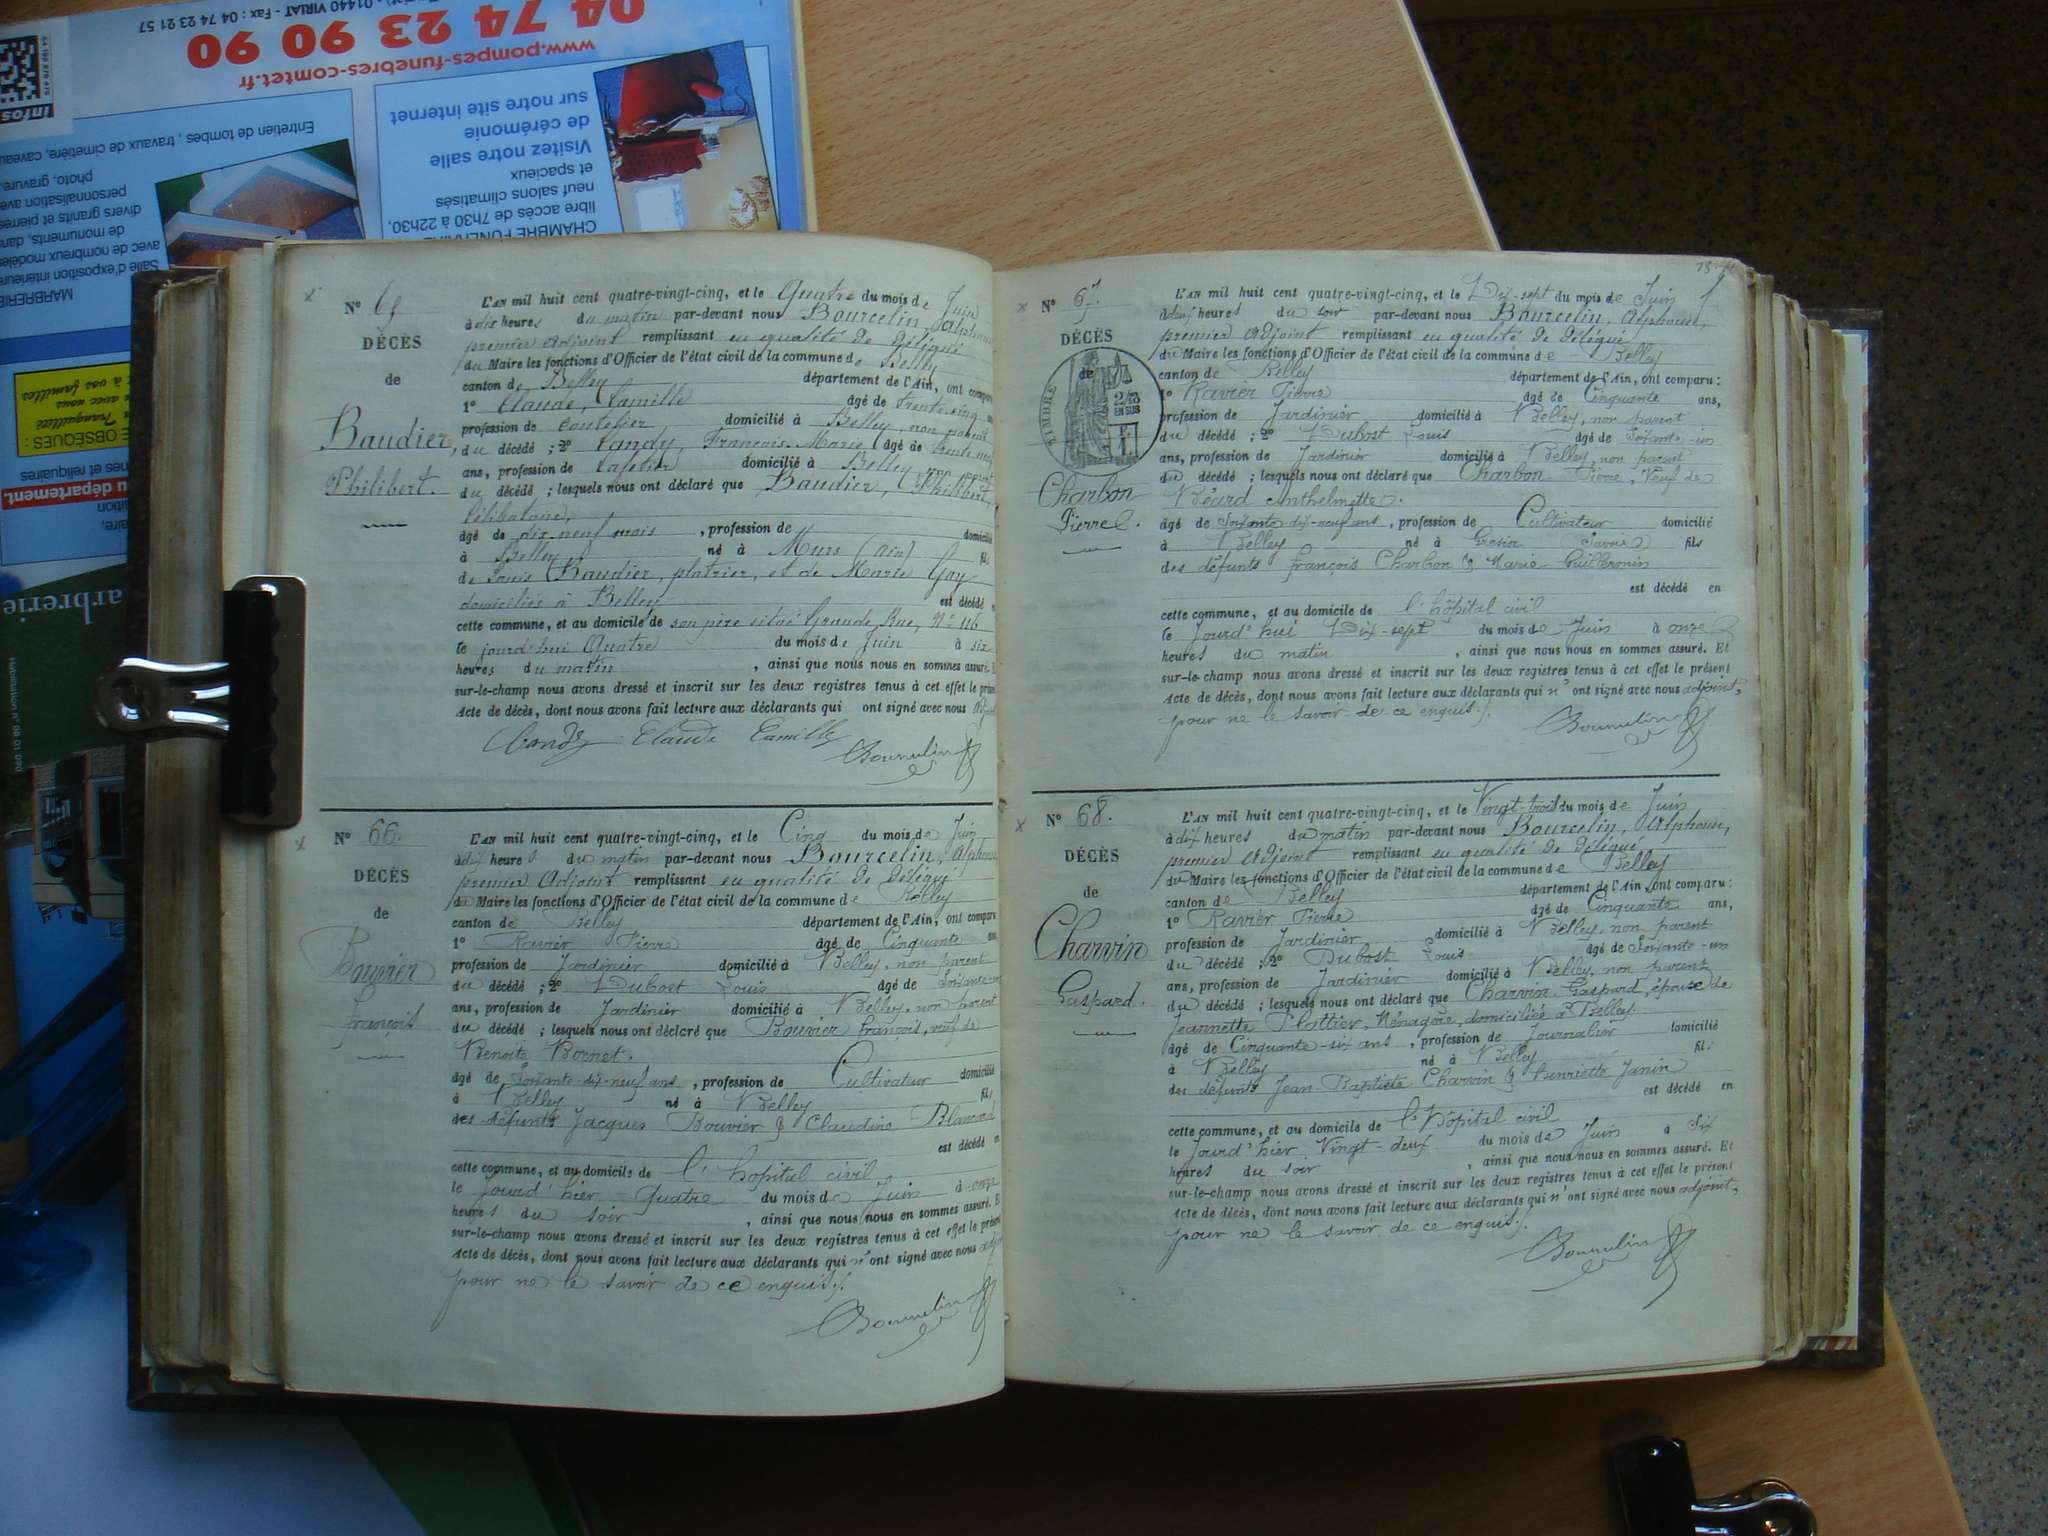 01440 VIRIAT - Fax : 04 74 23 21 57
04 74 23 90 90
www.pompes-funebres-comtet.fr
infos
Entretien de tombes, travaux de cimetière, caveau
photo, gravure
personnalisation ave
divers granits et pierres
de monuments, dans
avec de nombreux modèles
Salle d'exposition intérieure
MARBRERIE
Visitez notre salle
de cérémonie
sur notre site internet
et spacieux
neuf salons climatisés
libre accès de 7h30 à 22h30,
CHAMBRE FUNERAIRE
à vos familles
avec nous
Tranquillité
E OBSÈQUES :
nes et reliquaires
u département.
arbrerie
Habilitation n° 98 01 070
N° 65
DÉCÈS
de
Baudier,
Philibert.
L'AN mil huit cent quatre-vingt-cinq, et le Quatre du mois de Juin
à dix heures du matin par-devant nous Bourcelin, Alphonse
premier Adjoint remplissant en qualité de délégué
du Maire les fonctions d'Officier de l'état civil de la commune de Belley
canton de Belley département de l'Ain, ont comparu
1° Claude, Camille âgé de trente-cinq ans
profession de coutelier domicilié à Belley, non parent
du décédé ; 2° Candy, François-Marie âgé de trente neuf
ans, profession de cafetier domicilié à Belley, non parent
du décédé ; lesquels nous ont déclaré que Baudier, Philibert,
Célibataire,
âgé de dix neuf mois , profession de domicilié
à Belley né à Murs (Ain) fils
de Louis Baudier, platrier, et de Marie Gay
domiciliés à Belley est décédé en
cette commune, et au domicile de son père situé Grande Rue, N° 116
le jourd'hui Quatre du mois de Juin à six
heures du matin , ainsi que nous nous en sommes assuré. E
sur-le-champ nous avons dressé et inscrit sur les deux registres tenus à cet effet le prése
Acte de décès, dont nous avons fait lecture aux déclarants qui ont signé avec nous Adjoint
Candy Claude Camille Bourcelin
N° 66.
DÉCÈS
de
Bouvier
François
L'AN mil huit cent quatre-vingt-cinq, et le Cinq du mois de Juin
à dix heures du matin par-devant nous Bourcelin, Alphonse
premier Adjoint remplissant en qualité de délégué
du Maire les fonctions d'Officier de l'état civil de la commune de Belley
canton de Belley département de l'Ain, ont comparu
1° Ravier Pierre âgé de Cinquante ans
profession de Jardinier domicilié à Belley, non parent
du décédé ; 2° Dubost Louis âgé de Soixante-un
ans, profession de Jardinier domicilié à Belley, non parent
du décédé ; lesquels nous ont déclaré que Bouvier François, veuf de
Benoite Bornet.
âgé de Soixante-dix-neuf ans , profession de Cultivateur domicilié
à Belley né à Belley fils
des défunts Jacques Bouvier & Claudine Blancard
est décédé en
cette commune, et au domicile de l'hôpital civil
le jourd'hier Quatre du mois de Juin à onze
heures du soir , ainsi que nous nous en sommes assuré. E
sur-le-champ nous avons dressé et inscrit sur les deux registres tenus à cet effet le présen
Acte de décès, dont nous avons fait lecture aux déclarants qui n'ont signé avec nous adjoint
pour ne le savoir de ce enquis./.
Bourcelin
N° 67.
DÉCÈS
de
TIMBRE
2/10 EN SUS
Charbon
Pierre.
L'AN mil huit cent quatre-vingt-cinq, et le Dix-sept du mois de Juin
à deux heures du soir par-devant nous Bourcelin, Alphonse,
premier Adjoint remplissant en qualité de délégué
du Maire les fonctions d'Officier de l'état civil de la commune de Belley
canton de Belley département de l'Ain, ont comparu :
1° Ravier Pierre âgé de Cinquante ans,
profession de Jardinier domicilié à Belley, non parent
du décédé ; 2° Dubost Louis âgé de Soixante-un
ans, profession de Jardinier domicilié à Belley, non parent
du décédé ; lesquels nous ont déclaré que Charbon Pierre, Veuf de
Béard Anthelmette.
âgé de Soixante-dix-neuf ans , profession de Cultivateur domicilié
à Belley né à Grésin (Savoie) fils
des défunts François Charbon & Marie Guilbronin
est décédé en
cette commune, et au domicile de l'hôpital civil
le jourd'hui Dix-sept du mois de Juin à onze
heures du matin , ainsi que nous nous en sommes assuré. Et
sur-le-champ nous avons dressé et inscrit sur les deux registres tenus à cet effet le présent
Acte de décès, dont nous avons fait lecture aux déclarants qui n'ont signé avec nous adjoint,
pour ne le savoir de ce enquis./.
Bourcelin
N° 68.
DÉCÈS
de
Charvin
Gaspard.
L'AN mil huit cent quatre-vingt-cinq, et le Vingt-trois du mois de Juin
à dix heures du matin par-devant nous Bourcelin, Alphonse,
premier Adjoint remplissant en qualité de délégué
du Maire les fonctions d'Officier de l'état civil de la commune de Belley
canton de Belley département de l'Ain, ont comparu :
1° Ravier Pierre âgé de Cinquante ans,
profession de Jardinier domicilié à Belley, non parent
du décédé ; 2° Dubost Louis âgé de Soixante-un
ans, profession de Jardinier domicilié à Belley, non parent
du décédé ; lesquels nous ont déclaré que Charvin, Gaspard, époux de
Jeannette Plattier, Ménagère, domiciliée à Belley.
âgé de Cinquante-six ans , profession de Journalier domicilié
à Belley né à Belley fils
des défunts Jean Baptiste Charvin & Henriette Janin
est décédé en
cette commune, et au domicile de l'Hôpital civil
le jourd'hier Vingt-deux du mois de Juin à Six
heures du soir , ainsi que nous nous en sommes assuré. Et
sur-le-champ nous avons dressé et inscrit sur les deux registres tenus à cet effet le présent
Acte de décès, dont nous avons fait lecture aux déclarants qui n'ont signé avec nous adjoint,
pour ne le savoir de ce enquis./.
Bourcelin